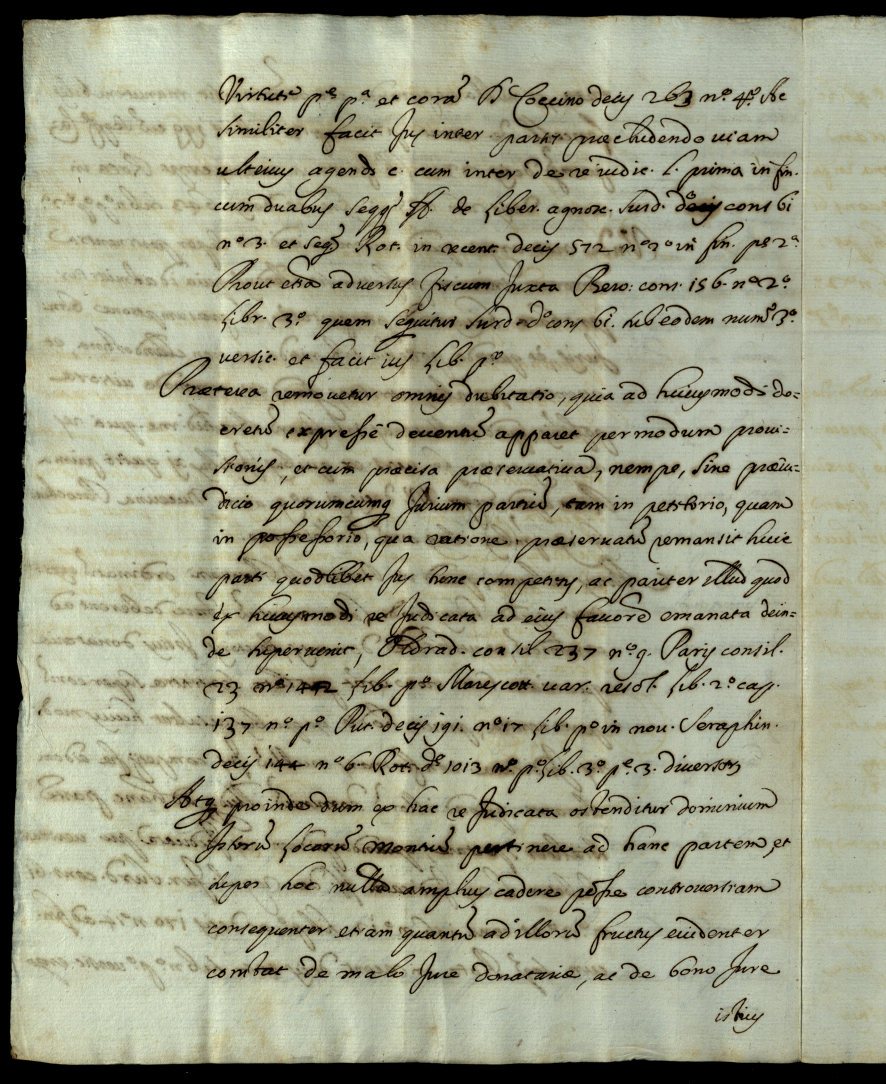 Virtute pe. pa. et corā D Coccino decis 263 no. 4o. Ac
similiter facit Jus inter partes præcludendo viam
ulterius agendi c. cum inter de re iudic. l. prima in fin.
cum duabus seqq ff. de liber. agnosc. Surd. do. cons 61
no. 3. et seq Rot. in recent. decis 572 no. 2o in fin. ps 2a.
Prout etiā adversus fiscum Juxta Bero: cons. 156. no. 2o.
libr. 3o. quem sequitur Surd. do. cons 61. sub eodem numo. 3o.
versic. et facit ius lib. po.
Præterea removetur omnis dubitatio, quia ad huiusmodi de=
cretū expressè deventū apparet per modum provi=
sionis, et cum præcisa præservativa, nempe, sine præiu=
dicio quorumcumq Jurium partiū, tam in petitorio, quam
in possessorio, qua ratione præservatū remansit huic
parti quodlibet Jus hinc competens, ac pariter illud quod
ex huiusmodi re Judicata ad eius favorē emanata dein=
de supervenit, Oldrad. consil 237 no. 9. Paris consil.
23 no. 142 lib. po. Marescott. var. resol. lib. 2o. cap.
137 no. po. Put. decis 191. no. 17 lib. po. in nov. Seraphin.
decis 144 no 6. Rot. do. 1013 no. po. lib. 3o. pe. 3. diversorū
Atq proinde dum ex hac re Judicata ostenditur dominium
Istorū Locorū Montiū pertinere ad hanc partem, et
super hoc nullā amplius cadere posse controversiam
consequenter etiam quantū ad illorū fructus evidenter
constat de malo Jure donatariæ, ac de bono Jure
istius